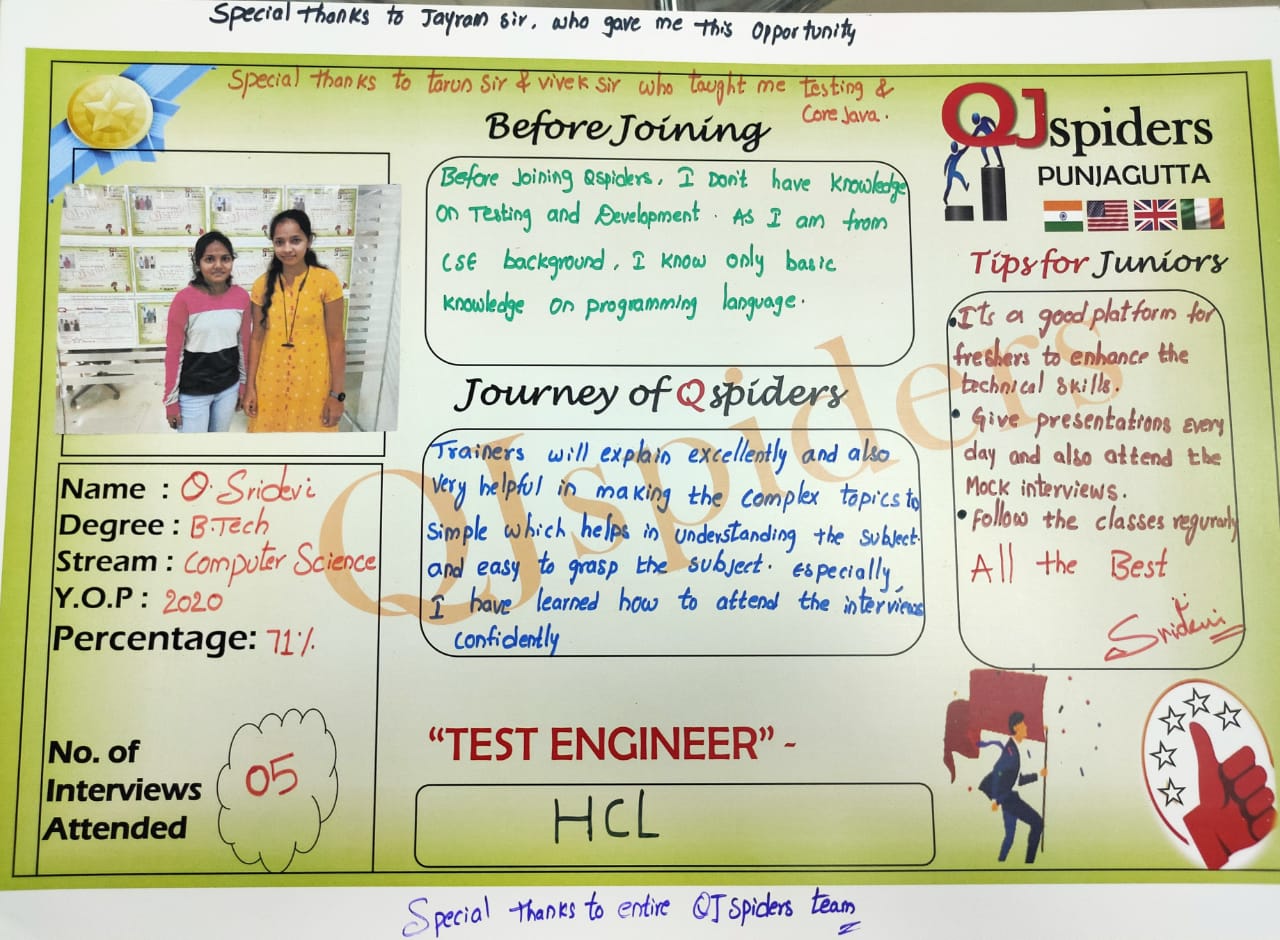 Special thanks to Jayram sir, who gave me this opportunity
Special thanks to tarun sir & vivek sir who taught me testing &
Core Java.
Before Joining
Before Joining Qspiders, I Don't have knowledge
on Testing and Development. As I am from
CSE background, I know only basic
knowledge on programming language.
QJspiders
PUNJAGUTTA
Journey of Qspiders
Trainers will explain excellently and also
very helpful in making the complex topics to
simple which helps in understanding the subject
and easy to grasp the subject. especially,
I have learned how to attend the interviews
confidently
Tips for Juniors
• It's a good platform for
freshers to enhance the
technical skills.
• Give presentations every
day and also attend the
Mock interviews.
• follow the classes regurarly
All the Best
Sridevi
Name : O. Sridevi
Degree : B.Tech
Stream : Computer Science
Y.O.P : 2020
Percentage: 71%.
No. of
Interviews
Attended
05
"TEST ENGINEER" -
HCL
QJspiders
Special thanks to entire QJspiders team